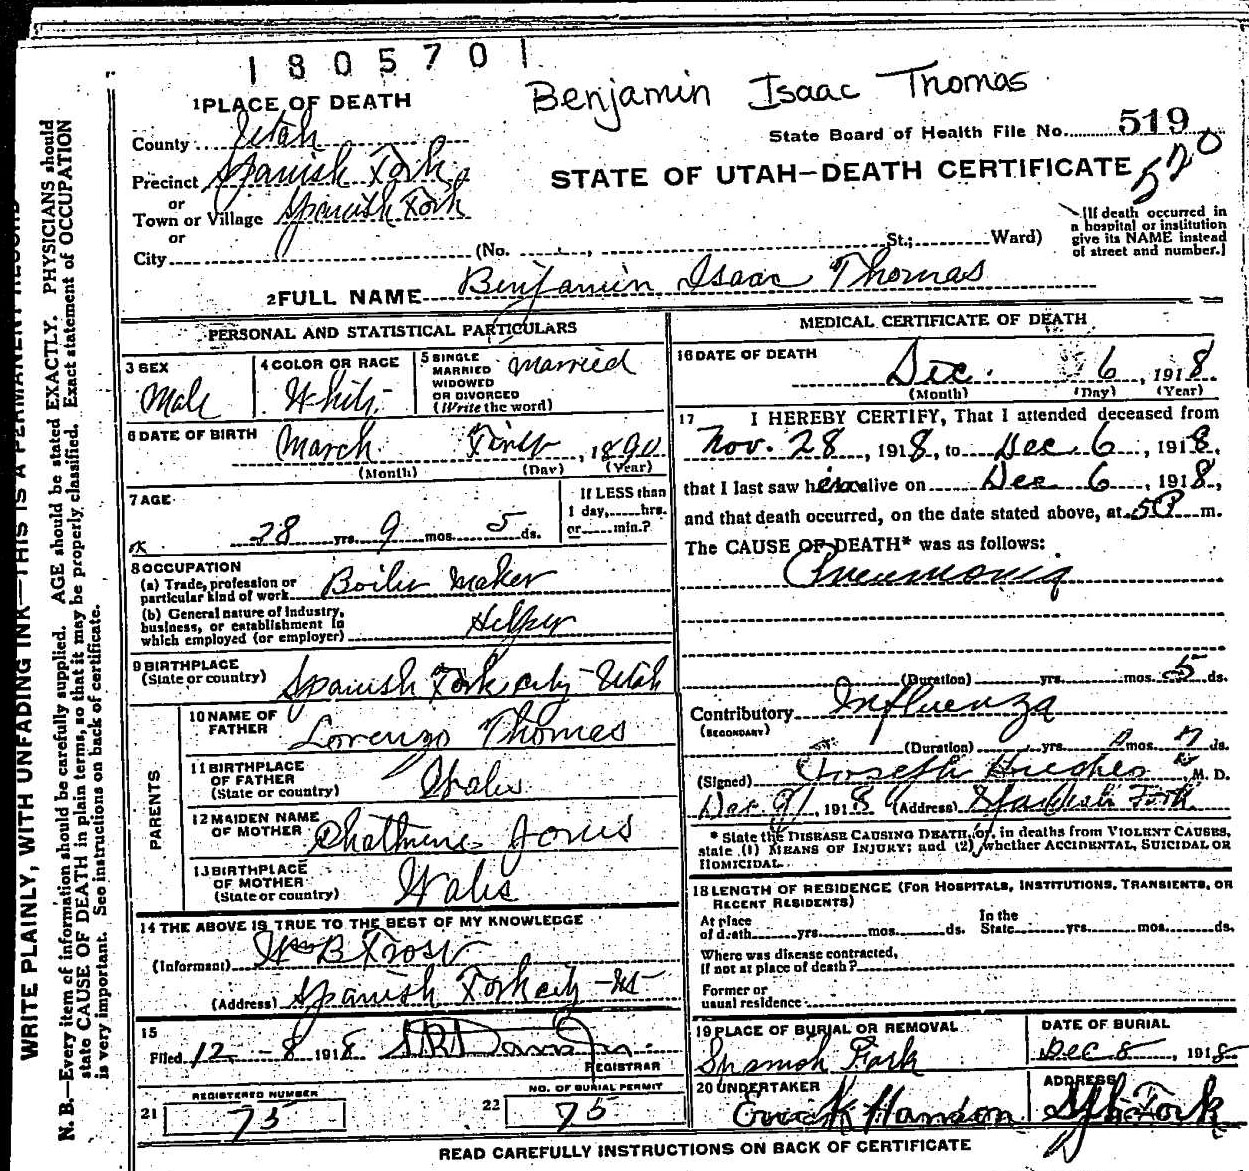 1805701
Benjamin Isaac Thomas
1 PLACE OF DEATH
County Utah
State Board of Health File No. 519
520
Precinct Spanish Fork
STATE OF UTAH—DEATH CERTIFICATE
or
Town or Village Spanish Fork
or
City (No. , St.; Ward)
[If death occurred in
a hospital or institution
give its NAME instead
of street and number.]
2 FULL NAME Benjamin Isaac Thomas
PERSONAL AND STATISTICAL PARTICULARS
3 SEX
Male
4 COLOR OR RACE
White
5 SINGLE
MARRIED
WIDOWED
OR DIVORCED
(Write the word)
Married
6 DATE OF BIRTH
March First, 1890
(Month) (Day) (Year)
7 AGE
28 yrs. 9 mos. 5 ds.
If LESS than
1 day, hrs.
or min.?
8 OCCUPATION
(a) Trade, profession or
particular kind of work Boiler Maker
(b) General nature of Industry,
business, or establishment in
which employed (or employer) Helper
9 BIRTHPLACE
(State or country) Spanish Fork city - Utah
PARENTS
10 NAME OF
FATHER Lorenzo Thomas
11 BIRTHPLACE
OF FATHER
(State or country) Wales
12 MAIDEN NAME
OF MOTHER Jones
13 BIRTHPLACE
OF MOTHER
(State or country) Wales
14 THE ABOVE IS TRUE TO THE BEST OF MY KNOWLEDGE
(Informant) Wm B Frost
(Address) Spanish Fork city - Ut
15
Filed 12 - 8 1918
REGISTRAR
REGISTERED NUMBER
21 75
NO. OF BURIAL PERMIT
22 75
MEDICAL CERTIFICATE OF DEATH
16 DATE OF DEATH
Dec. 6, 1918
(Month) (Day) (Year)
17 I HEREBY CERTIFY, That I attended deceased from
Nov. 28, 1918, to Dec 6, 1918,
that I last saw him alive on Dec 6, 1918,
and that death occurred, on the date stated above, at 5P m.
The CAUSE OF DEATH* was as follows:
Pneumonia
(Duration) yrs. mos. 5 ds.
Contributory Influenza
(SECONDARY)
(Duration) yrs. mos. ds.
(Signed) Joseph Hughes M. D.
Dec 9, 1918 (Address) Spanish Fork
* State the DISEASE CAUSING DEATH, or, in deaths from VIOLENT CAUSES,
state (1) MEANS OF INJURY; and (2) whether ACCIDENTAL, SUICIDAL OR
HOMICIDAL.
18 LENGTH OF RESIDENCE (FOR HOSPITALS, INSTITUTIONS, TRANSIENTS, OR
RECENT RESIDENTS)
At place
of death yrs. mos. ds.
In the
State yrs. mos. ds.
Where was disease contracted,
if not at place of death?
Former or
usual residence
19 PLACE OF BURIAL OR REMOVAL
Spanish Fork
DATE OF BURIAL
Dec 8, 1918
20 UNDERTAKER
Hanson
ADDRESS
Fork
READ CAREFULLY INSTRUCTIONS ON BACK OF CERTIFICATE
WRITE PLAINLY, WITH UNFADING INK—THIS IS A PERMANENT RECORD
N. B.—Every item of information should be carefully supplied. AGE should be stated EXACTLY. PHYSICIANS should
state CAUSE OF DEATH in plain terms, so that it may be properly classified. Exact statement of OCCUPATION
is very important. See instructions on back of certificate.